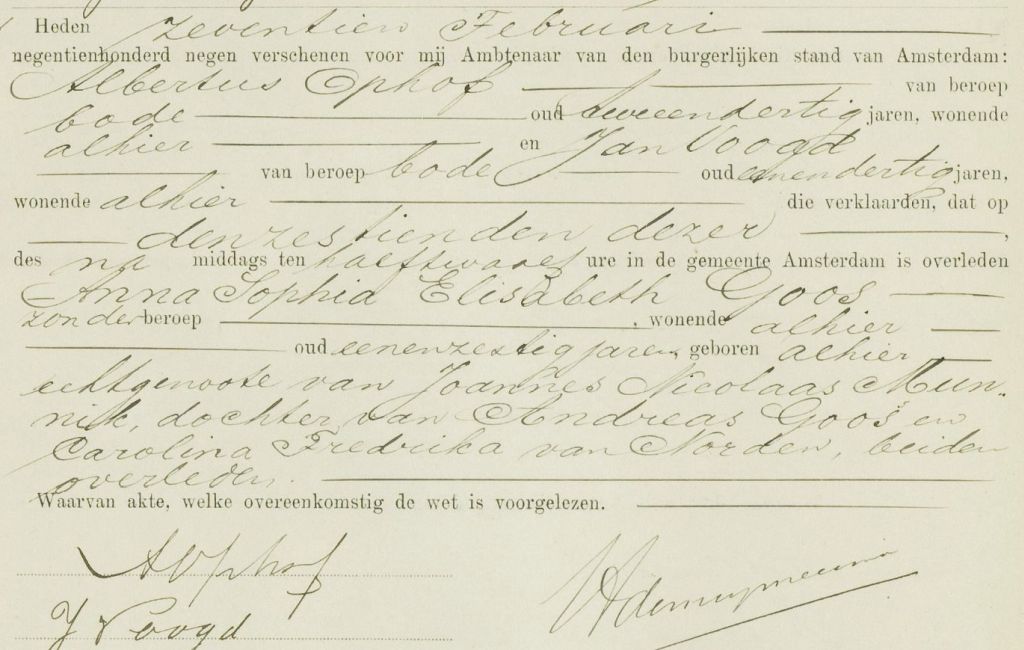 Heden zeventien Februari
negentienhonderd negen verschenen voor mij Ambtenaar van den burgerlijken stand van Amsterdam:
Albertus Ophof van beroep
bode oud tweeendertig jaren, wonende
alhier en Jan Voogd
van beroep bode oud eenendertig jaren,
wonende alhier die verklaarden, dat op
den zestienden dezer,
des na middags ten halftwaalf ure in de gemeente Amsterdam is overleden
Anna Sophia Elisabeth Goos
zonder beroep, wonende alhier
oud eenenzestig jaren, geboren alhier
echtgenoote van Joannes Nicolaas Mun-
nik, dochter van Andreas Goos en
Carolina Fredrika van Norden, beiden
overleden.
Waarvan akte, welke overeenkomstig de wet is voorgelezen.
A Ophof
J Voogd